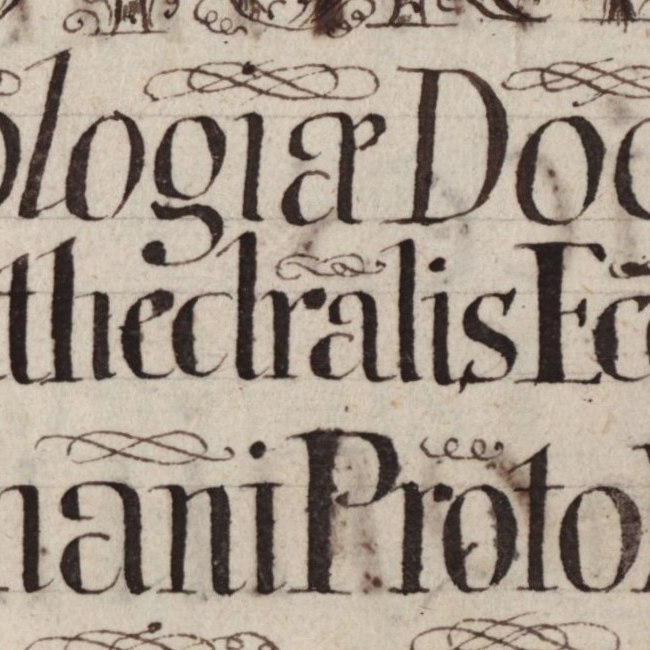 ologiæ Doc
thedralis Ecc
nani Proto